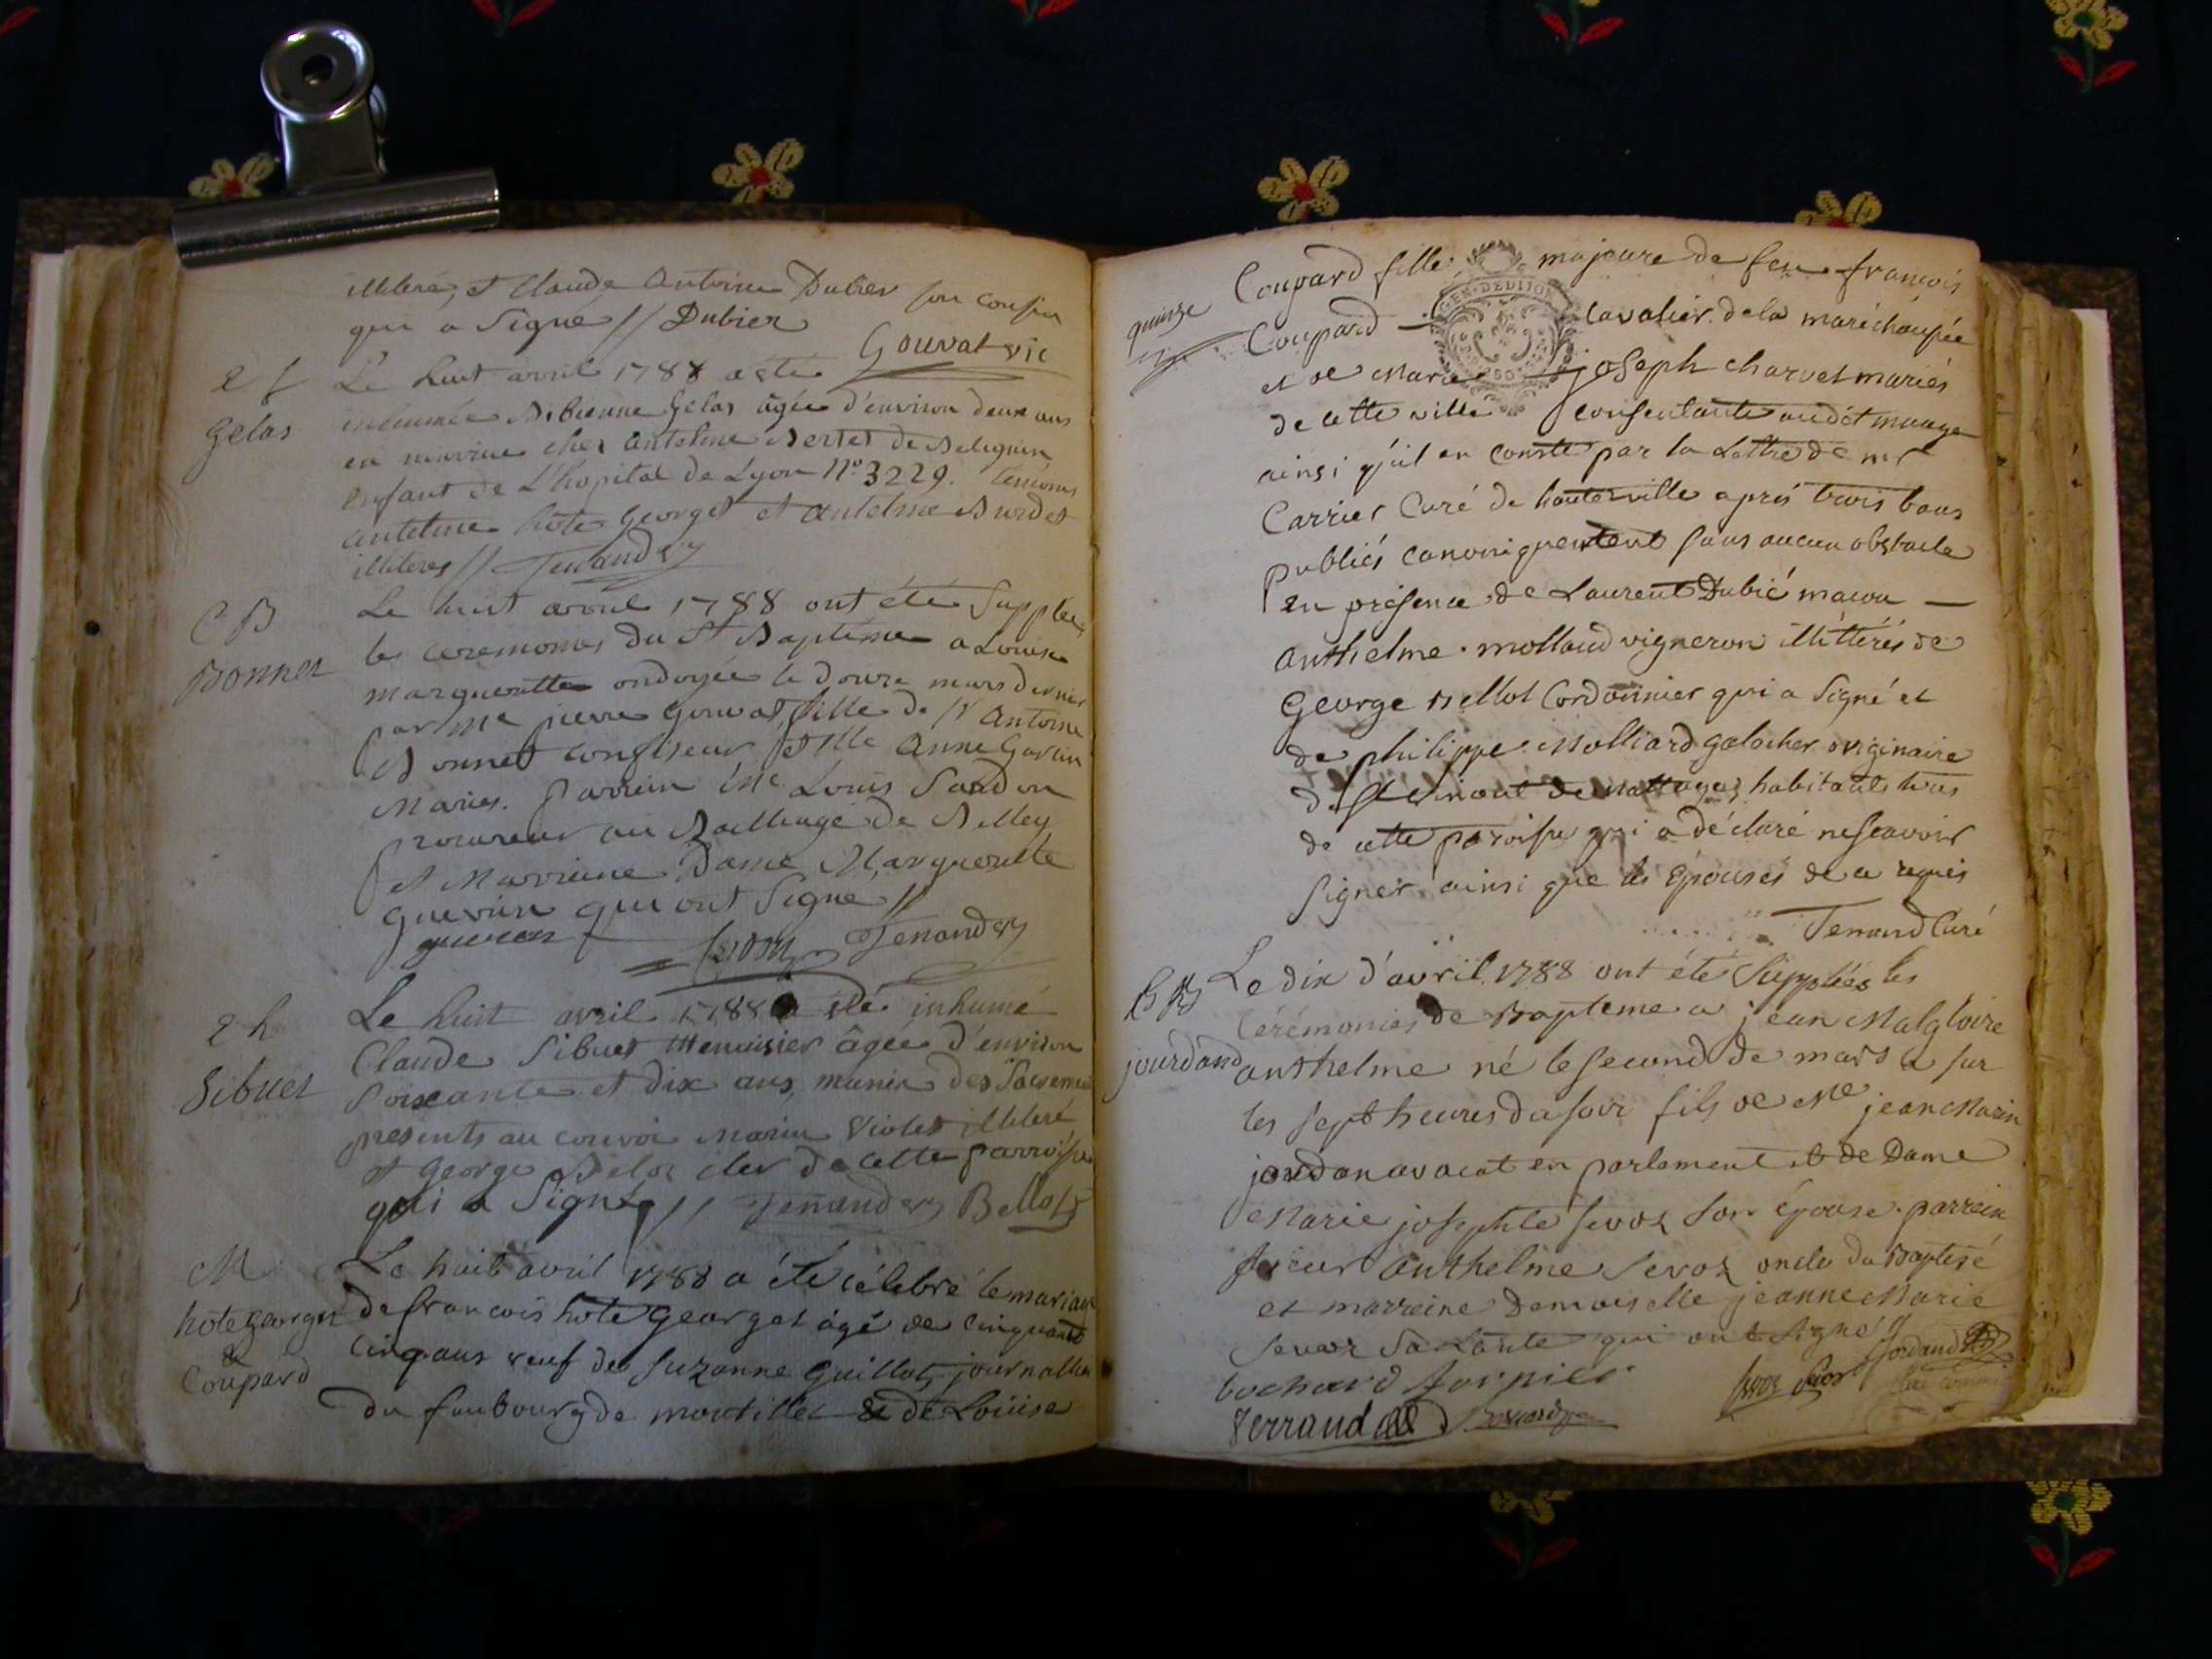 illiteré, et Claude Antoine Dubier son cousin
qui a Signé // Dubier
Gouvat vic
2 f
Gelas
Le huit avril 1788 a été
inhumée Bibienne Gelas âgée d'environ deux ans
en nourrice chez antelme Bertet de
enfant de L'hopital de Lyon N° 3229. temoins
antelme hote Georget et antelme Burdet
illiteres // Tenand
C B
Bonnet
Le huit avril 1788 ont été Supplées
les ceremonies du St Baptême a Louise
Margueritte ondoyée le douze mars dernier
par Me pierre Gouvat, fille de Sr Antoine
Bonnet confiseur et Dlle Anne
Mariés. Parrein Me Louis
procureur au Bailliage de Belley
et Marreine Dame Margueritte
Guerin qui ont Signé //
guerin Tenand
2 h
Sibuet
Le huit avril 1788 a été inhumé
Claude Sibuet Menuisier âgée d'environ
Soixante et dix ans, munis des Sacremens
presents au convoi Marin Violet illiteré
et George Belot clerc de cette parroisse
qui a Signé // Tenand Bellot
M
hote georget
&
Coupard
Le huit avril 1788 a été célébré le mariage
de françois hote georget âgé de cinquante
cinq ans veuf de Suzanne Guillot, journallier
du faubourg de montillet & de Loüise
quinze
Coupard fille majeure de feu françois
Coupard cavalier de la maréchaussée
et de Marie joseph charvet mariés
de cette ville consentante audit mariage
ainsi qu'il en conste par la Lettre de mr
Carrier Curé de hauteville après trois bans
publiés canoniquement sans aucun obstacle
en présence de Laurent Dubié macon —
anthelme mollaud vigneron illittérés de
George Bellot Cordonnier qui a Signé et
de philippe Molliard galocher originaire
de habitants tous
de cette paroisse qui a déclaré ne scavoir
signer ainsi que les Epousés de ce requis
Tenand Curé
GEN. DE DIJON
C B
jourdand
Le dix d'avril 1788 ont été Supplées les
Cérémonies de Bapteme a jean Malgloire
anthelme né le second de mars a sur
les sept heures du soir fils de Me jean Marin
jourdan avocat en parlement et de Dame
Marie josephte Sevoz son épouse. parrein
sieur Anthelme Sevoz oncle du Baptisé
et marreine Demoiselle jeanne Marie
Sevoz Sa tante qui ont signé //
Jordand
bochard Sevoz
Ferrand